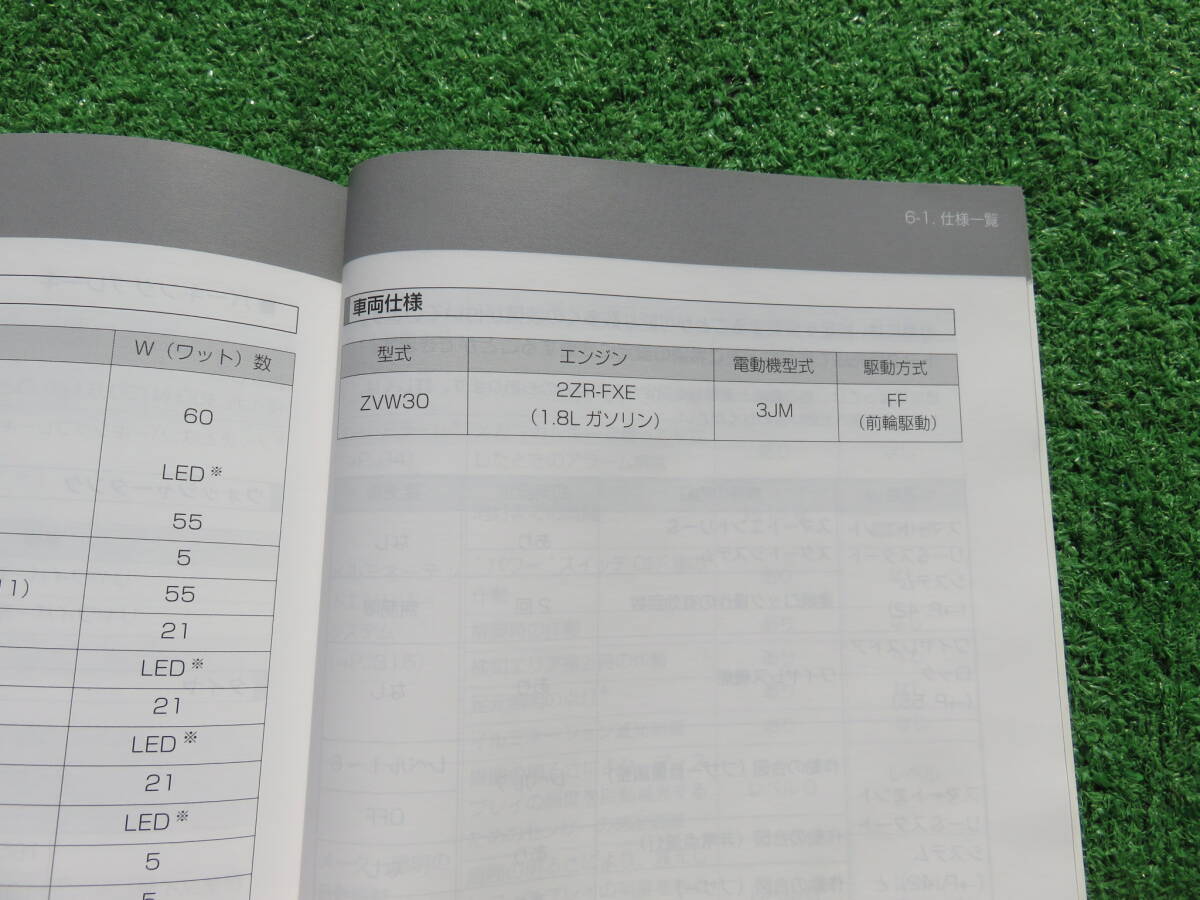 W（ワット）数
60
LED※
55
5
11）
55
21
LED※
21
LED※
21
LED※
5
5
6-1. 仕様一覧
車両仕様
型式 エンジン 電動機型式 駆動方式
ZVW30 2ZR-FXE
（1.8L ガソリン） 3JM FF
（前輪駆動）